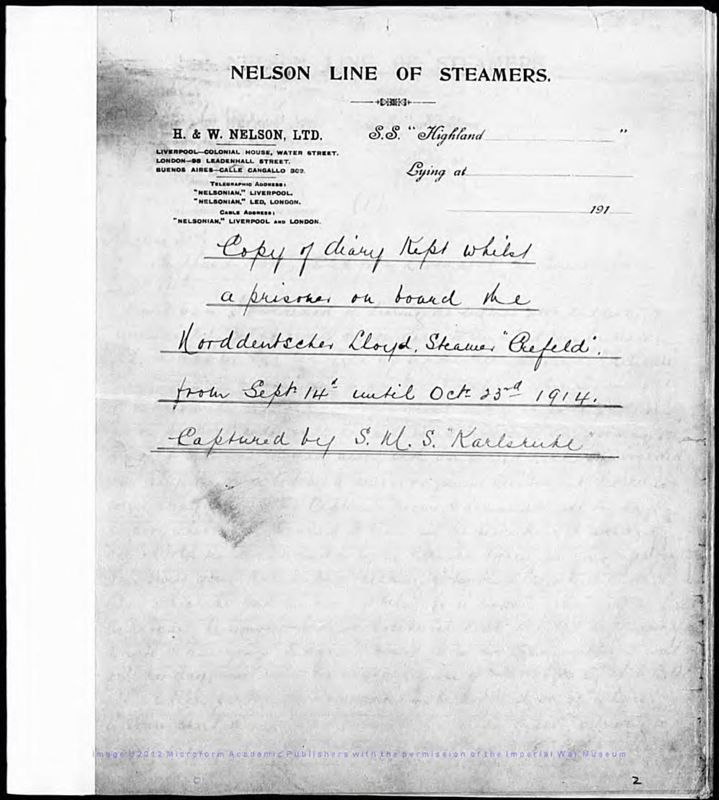 NELSON LINE OF STEAMERS.
H. & W. NELSON, LTD.
LIVERPOOL—COLONIAL HOUSE, WATER STREET.
LONDON—98 LEADENHALL STREET.
BUENOS AIRES—CALLE CANGALLO 309.
TELEGRAPHIC ADDRESS:
"NELSONIAN," LIVERPOOL.
"NELSONIAN," LED, LONDON.
CABLE ADDRESS:
"NELSONIAN," LIVERPOOL AND LONDON.
S.S. "Highland "
Lying at
191
Copy of diary Kept whilst
a prisoner on board the
Norddeutscher Lloyd, Steamer "Crefeld".
from Sept 14th until Oct 23rd 1914.
Captured by S. M. S. "Karlsruhe"
Image ©2012 Microform Academic Publishers with the permission of the Imperial War Museum
2